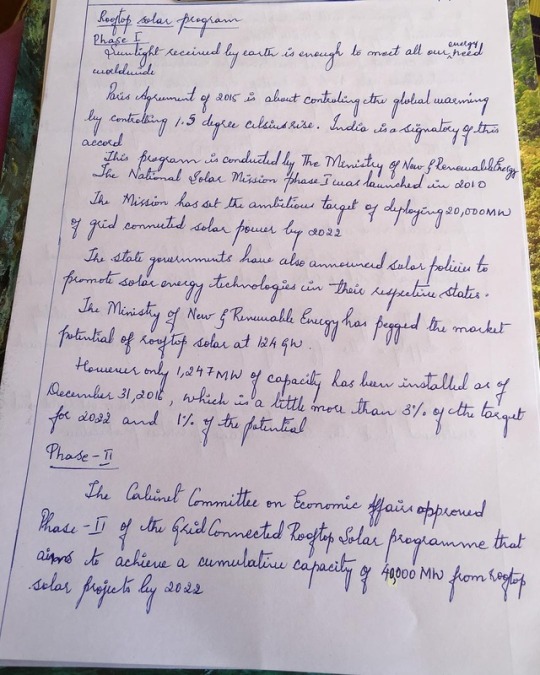 Rooftop solar program
Phase I
Sunlight received by earth is enough to meet all our energy need
worldwide
Paris Agreement of 2015 is about controling the global warming
by controlling 1.5 degree celsius rise. India is a signatory of this
accord
This program is conducted by The Ministry of New & Renewable Energy
The National Solar Mission phase I was launched in 2010
The Mission has set the ambitious target of deploying 20,000MW
of grid connected solar power by 2022
The state governments have also announced solar policies to
promote solar energy technologies in their respective states.
The Ministry of New & Renewable Energy has pegged the market
potential of rooftop solar at 124 GW.
However only 1,247 MW of capacity has been installed as of
December 31, 2016, which is a little more than 3% of the target
for 2022 and 1% of the potential
Phase-II
The Cabinet Committee on Economic Affairs approved
Phase-II of the Grid Connected Rooftop Solar programme that
aims to achieve a cumulative capacity of 40,000 MW from rooftop
solar projects by 2022